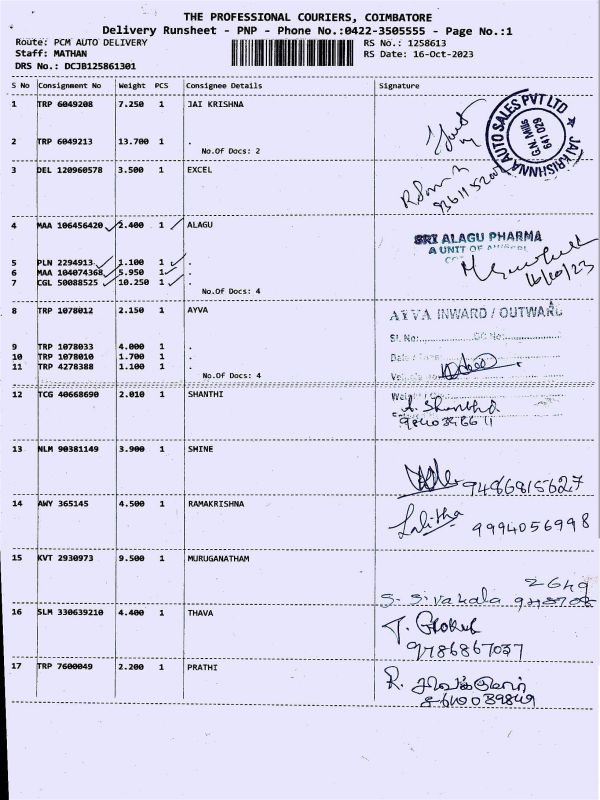 THE PROFESSIONAL COURIERS, COIMBATORE
Delivery Runsheet - PNP - Phone No.:0422-3505555 - Page No.:1
Route: PCM AUTO DELIVERY
RS No.: 1258613
Staff: MATHAN
RS Date: 16-Oct-2023
DRS No.: DCJB125861301
S No Consignment No Weight PCS Consignee Details Signature
1 TRP 6049208 7.250 1 JAI KRISHNA
JAI KRISHNNA AUTO SALES PVT LTD
G.N. Mills
641 029
2 TRP 6049213 13.700 1 .
No.Of Docs: 2
3 DEL 120960578 3.500 1 EXCEL
4 MAA 106456420 2.400 1 ALAGU
SRI ALAGU PHARMA
A UNIT OF
5 PLN 2294913 1.100 1 .
6 MAA 104074368 5.950 1 .
7 CGL 50088525 10.250 1 .
16/10/23
No.Of Docs: 4
8 TRP 1078012 2.150 1 AYVA
AYVA INWARD / OUTWARD
Sl. No:
9 TRP 1078033 4.000 1 .
10 TRP 1078010 1.700 1 .
11 TRP 4278388 1.100 1 .
No.Of Docs: 4
12 TCG 40668690 2.010 1 SHANTHI
A. Shanthi
13 NLM 90381149 3.900 1 SHINE
9486815627
14 AWY 365145 4.500 1 RAMAKRISHNA
Lalitha 9994056998
15 KVT 2930973 9.500 1 MURUGANATHAM
2649
S. Sivakala
16 SLM 330639210 4.400 1 THAVA
9786867037
17 TRP 7600049 2.200 1 PRATHI
R.